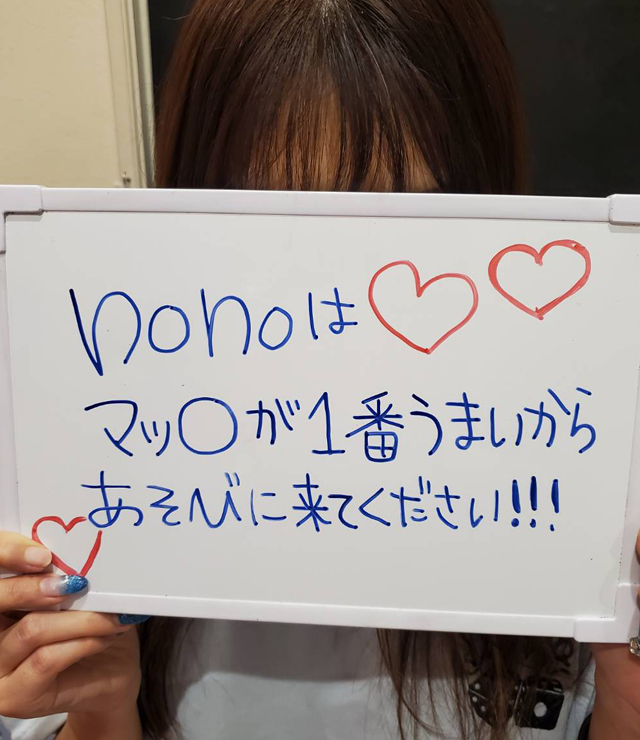 nonoは
マッ〇が1番うまいから
あそびに来てください!!!